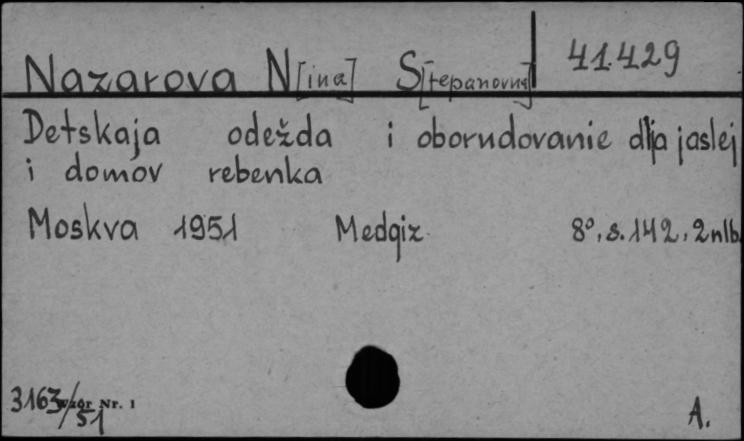 Nazarova N[ina] S[tepanovna] 41.429
Detskaja odežda i oborudovanie dlja jaslej
i domov rebenka
Moskva 1951 Medgiz 8°, s. 142, 2 nlb.
3163/51 Wzór Nr. 1 A.